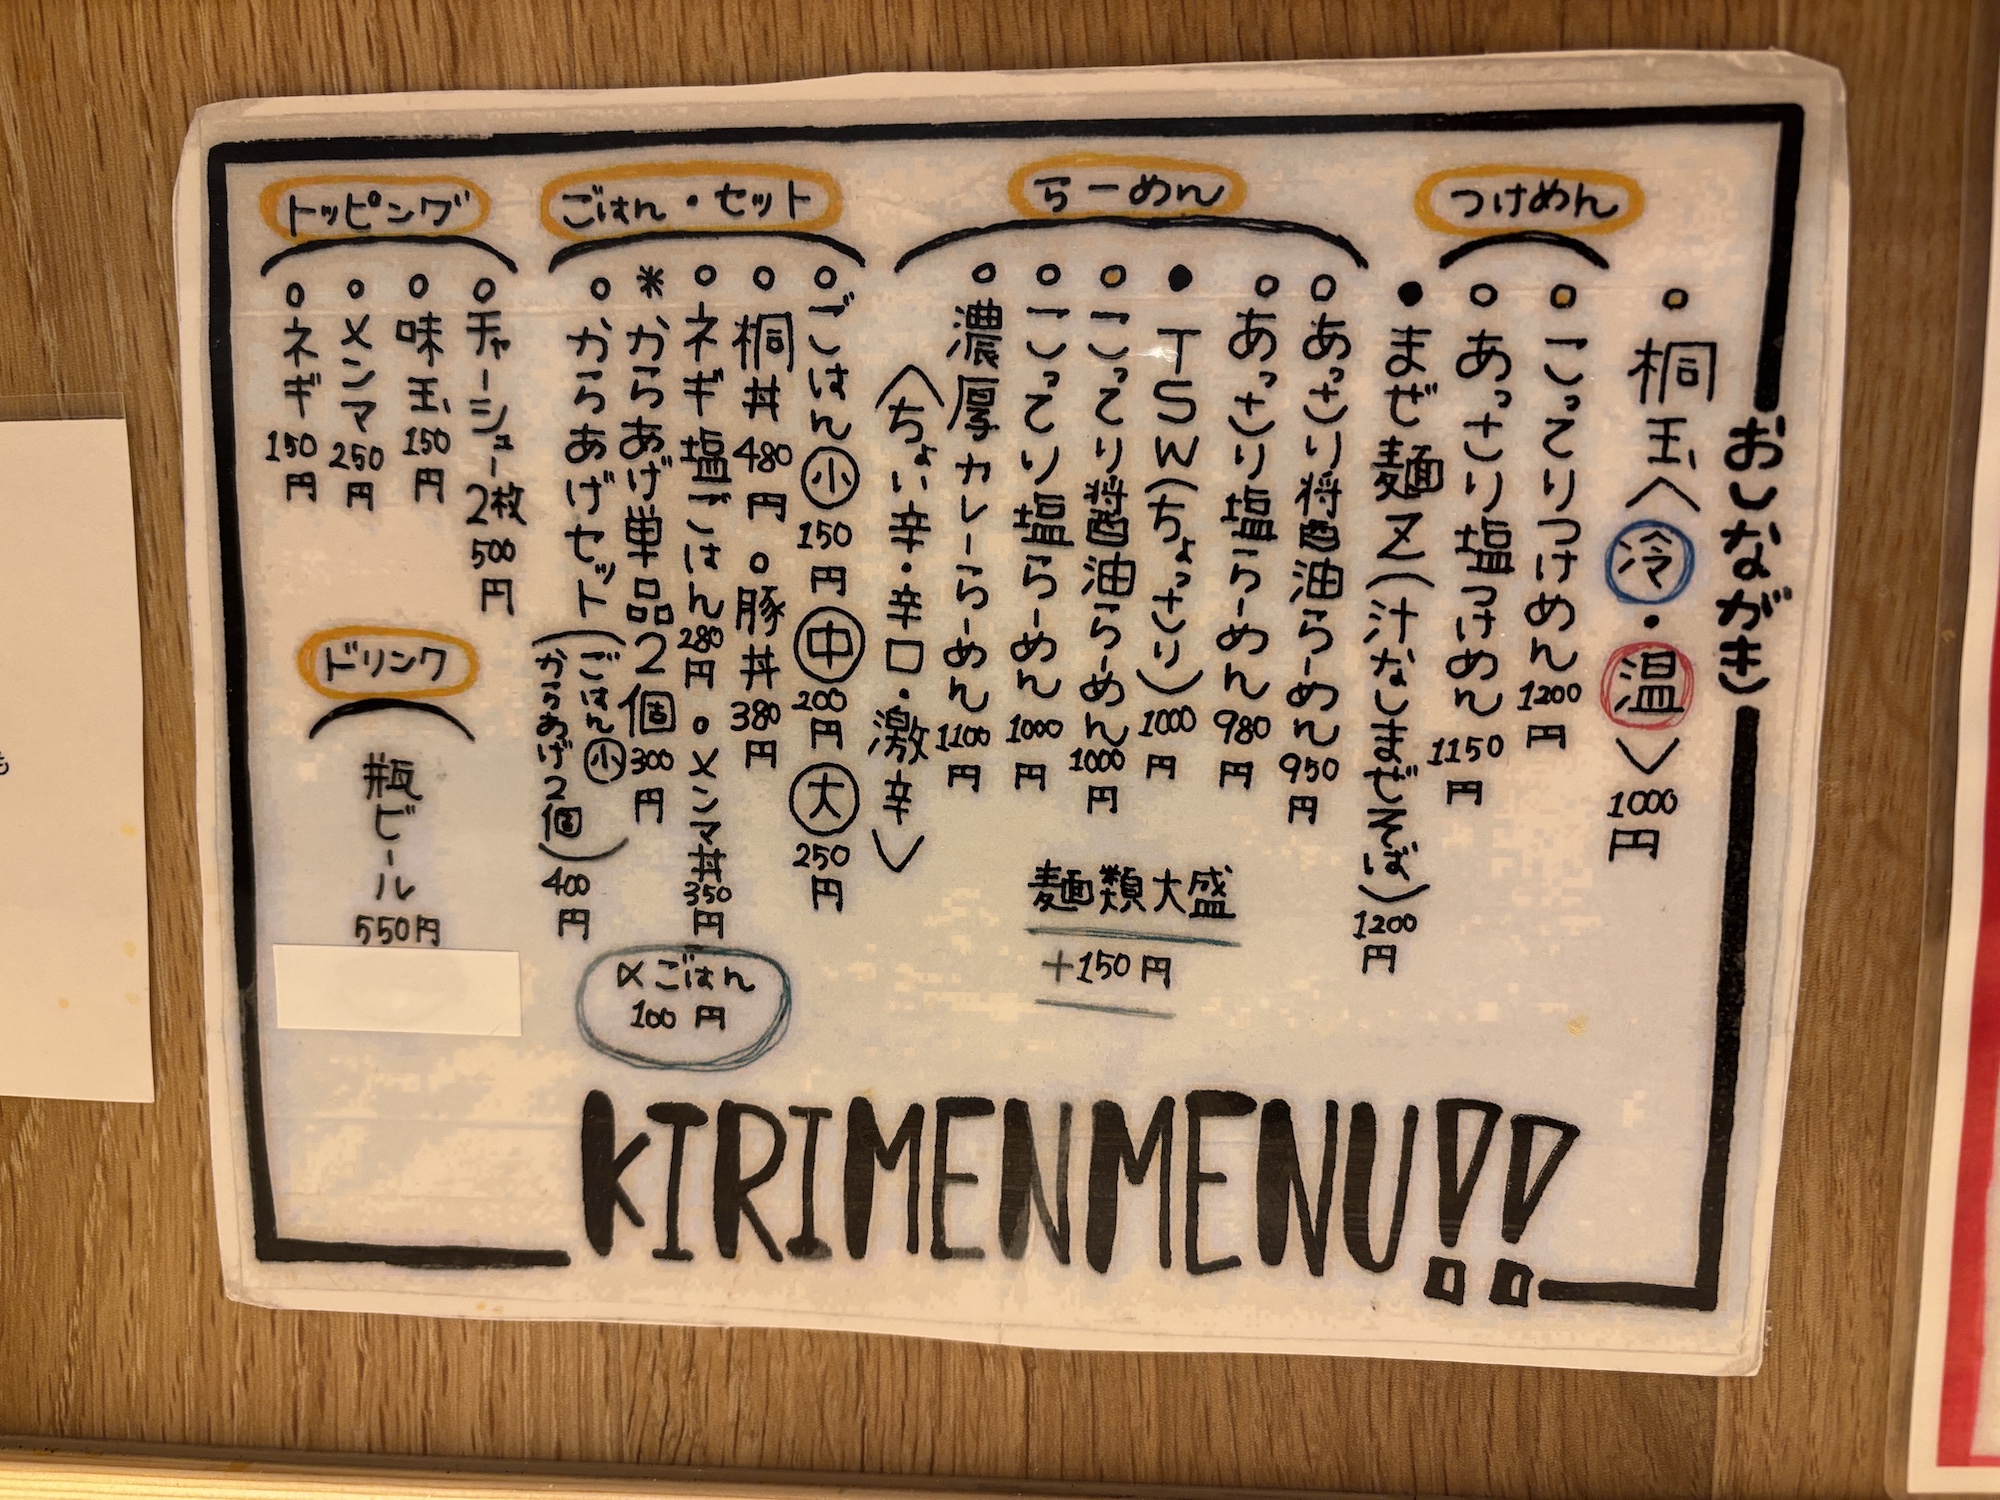 おしながき
桐玉〈冷・温〉1000円
つけめん
こってりつけめん1200円
あっさり塩つけめん1150円
まぜ麺Z(汁なしまぜそば)1200円
らーめん
あっさり醤油らーめん950円
あっさり塩らーめん980円
TSW(ちょっさり)1000円
こってり醤油らーめん1000円
こってり塩らーめん1000円
濃厚カレーらーめん1100円
〈ちょい辛・辛口・激辛〉
麺類大盛
+150円
ごはん・セット
ごはん小150円中200円大250円
桐丼480円 豚丼380円
ネギ塩ごはん280円 メンマ丼350円
*からあげ単品2個300円
からあげセット(ごはん小からあげ2個)400円
〆ごはん
100円
トッピング
チャーシュー2枚500円
味玉150円
メンマ250円
ネギ150円
ドリンク
瓶ビール
550円
KIRIMENMENU!!